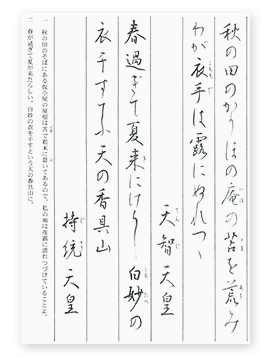 秋の田のかりほの庵の苫を荒み
わが衣手は露にぬれつゝ
天智天皇
春過ぎて夏来にけらし白妙の
衣干すてふ天の香具山
持統天皇
一 秋の田のそばにある仮小屋の屋根は苫で粗末に葺いてあるので、私の袖は夜露に濡れつづけていることよ。
二 春が過ぎて夏が来たらしい。白妙の衣を干すという天の香具山に。